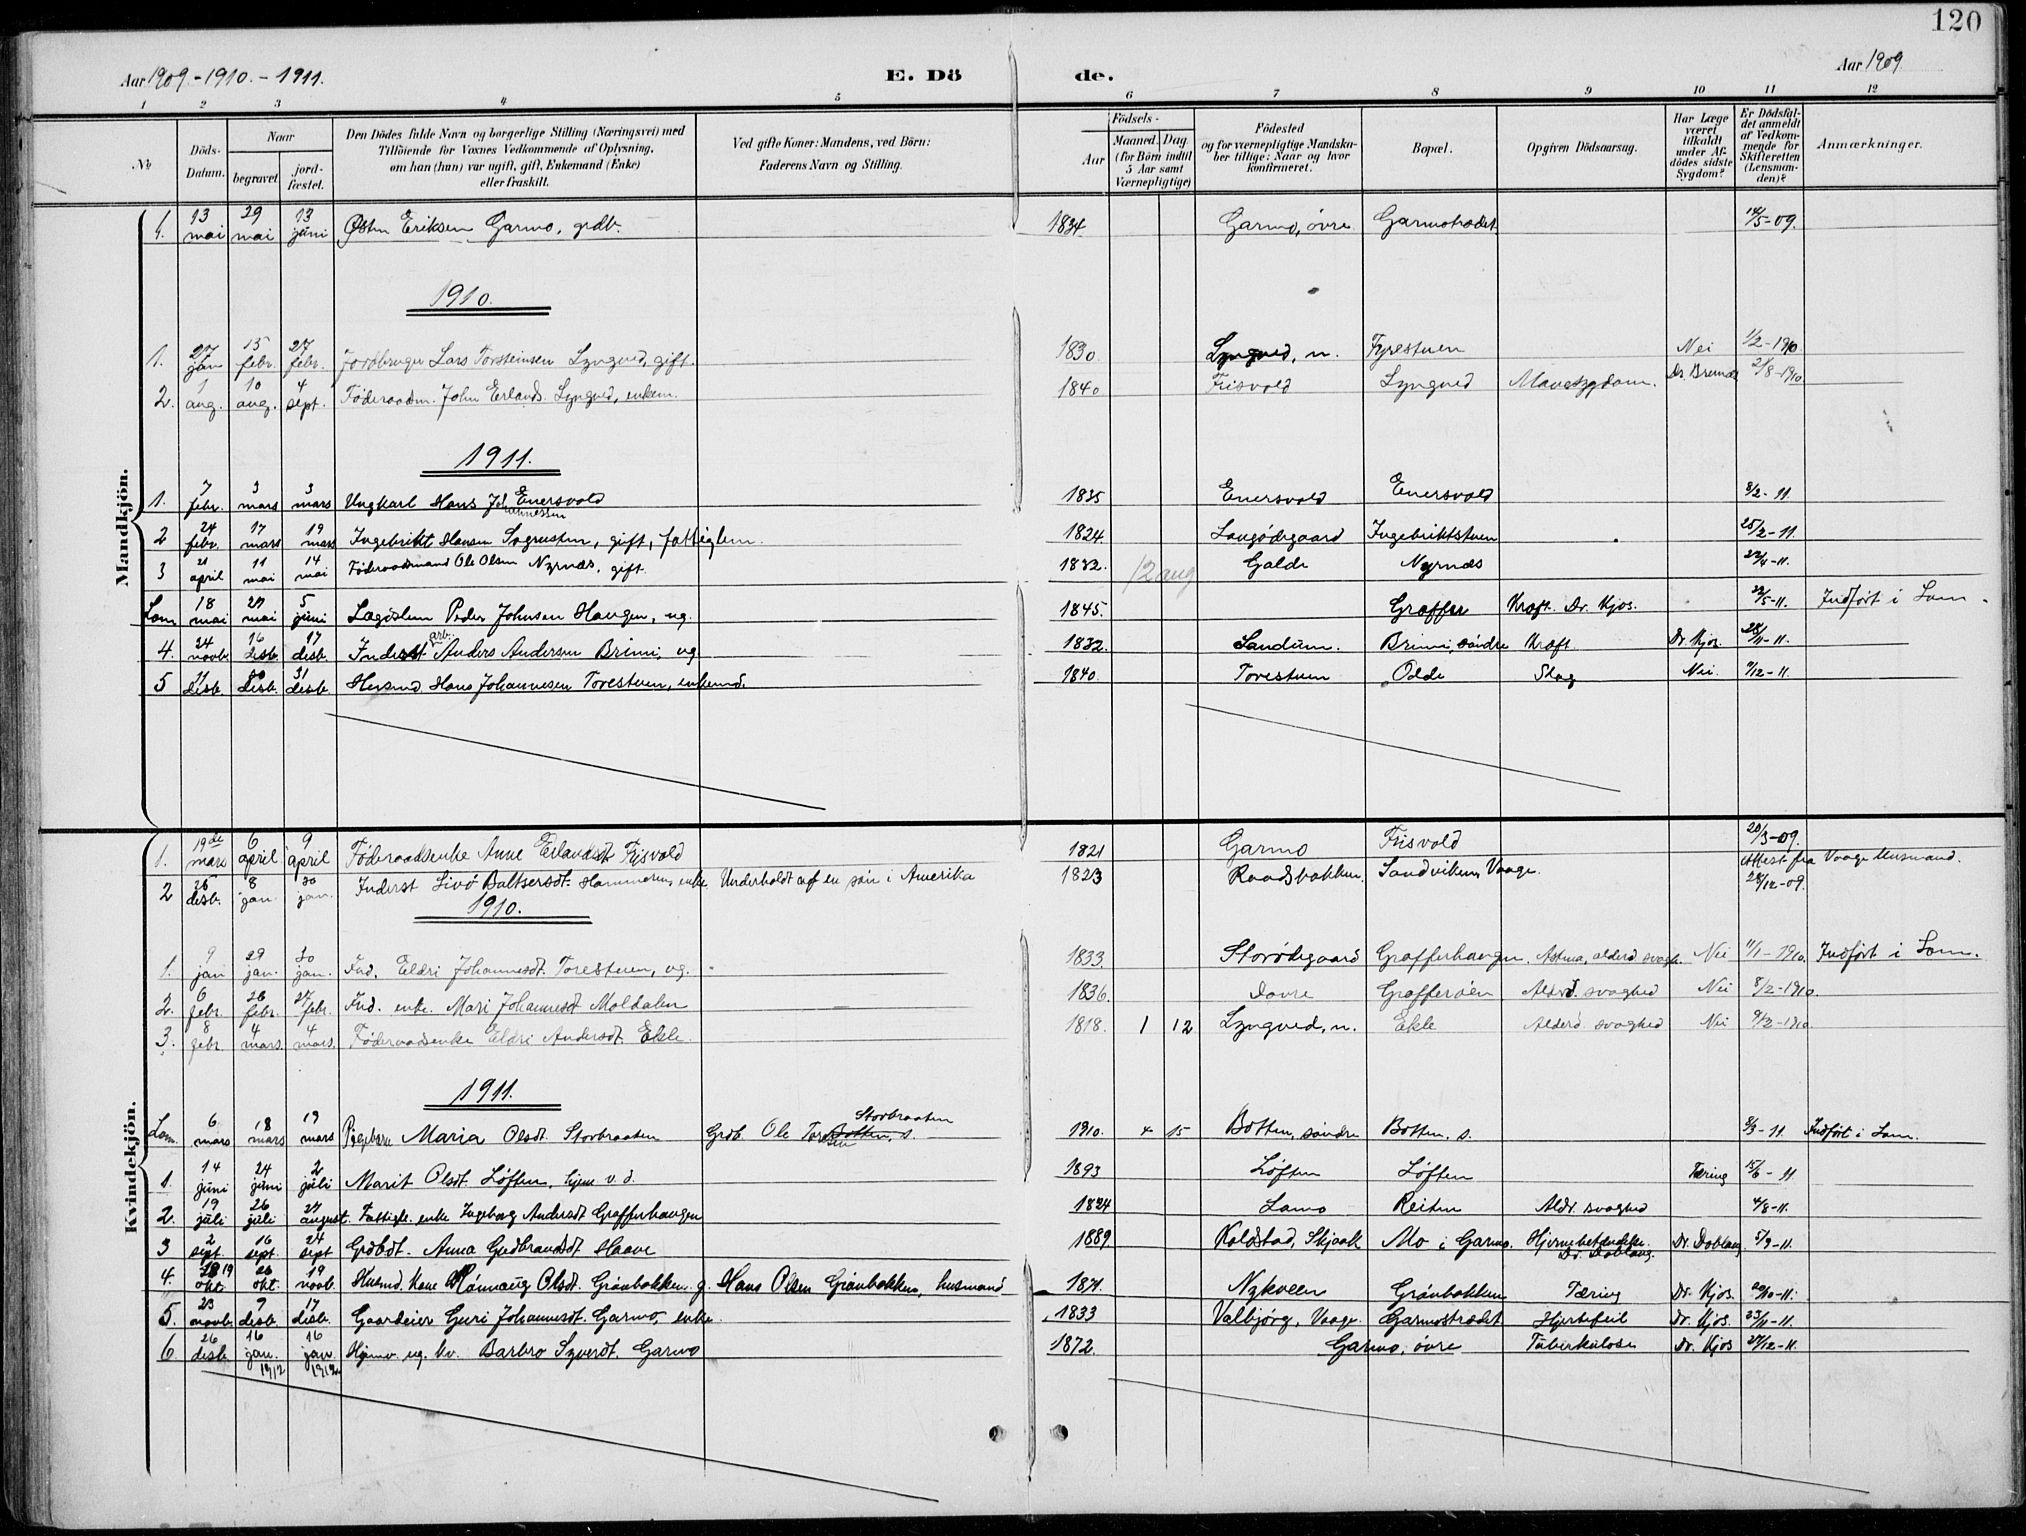 120
Aar 1909-1910.-1911. E. Dö de. Aar 1909
1 2 3 4 5 6 7 8 9 10 11 12
No Döds-Datum. Naar begravet. jordfæstet. Den Dödes fulde Navn og borgerlige Stilling (Næringsvei) med Tilföiende for Voxnes Vedkommende af Oplysning, om han (hun) var ugift, gift, Enkemand (Enke) eller fraskilt. Ved gifte Koner: Mandens, ved Börn: Faderens Navn og Stilling. Födsels- Aar Maaned. Dag. (for Börn indtil 5 Aar samt Værnepligtige) Födested og for værnepligtige Mandskaber tillige: Naar og hvor konfirmeret. Bopæl. Opgiven Dödsaarsag. Har Læge været tilkaldt under Afdödes sidste Sygdom? Er Dödsfaldet anmeldt af Vedkommende for Skifteretten (Lensmanden)? Anmærkninger.
Mandkjön.
13 mai 29 mai 13 juni Østen Eriksen Garmo, grdb. 1834 Garmo, øvre Garmotrædet. 14/5-09.
1910.
1. 27 jan 15 febr. 27 febr. Jordbruger Lars Torsteinsen Lyngved, gift. 1830 Lyngved, n. Fyrestuen Nei 1/2-1910
2. 1 aug. 10 aug. 4 sept. Føderaadsm. John Erlands. Lyngved, enkem. 1840 Frisvold Lyngved Mavesygdom. 2/8-1910
1911.
1. 7 febr. 3 mars 3 mars Ungkarl Hans Johannessen Enersvold 1835 Enersvold Enersvold 8/2-11
2 24 febr. 17 mars 19 mars Ingebrikt Hansen Sogrusten, gift, fattiglem. 1824 Langødegaard Ingebriktstuen 25/2-11.
3 21 april 11 mai 14 mai Føderaadsmand Ole Olsen Nyrnæs, gift. 1832 12 aug Galde Nyrnæs 22/4-11.
Lom 18 mai 27 mai 5 juni Lægdslem Peder Johnsen Haugen, ug. 1845. Graffer Kræft. Dr. Kjos. 22/5-11. Indført i Lom.
4. 24 novb. 16 desb. 17 desb. Inderst arb. Anders Andersen Brimi, ug 1832. Sandum. Brimi, søndre Kræft. Dr. Kjos. 28/11-11.
5 11 desb. 30 desb. 31 desb. Husmd Hans Johannesen Torestuen, enkemd. 1840. Torestuen Odde Slag Nei. 9/12-11.
Kvindekjön.
1. 19de mars 6 april 9 april Føderaadsenke Anne Erlandsdt. Frisvold 1821 Garmo Frisvold 20/3-09.
2 26 desb. 8 jan. 30 jan. Inderst Livø Baltsersdt. Hammeren, enke Underholdt af en søn i Amerika 1823 Raadsbakken. Sandviken, Vaage. Attest fra Vaage lensmand. 28/12-09.
1910.
1. 9 jan 29 jan. 30 jan. Ind. Eldri Johannesdt. Torestuen, ug. 1833. Storødegaard Grafferhaugen. Astma, alderd. svagh. Nei 11/1-1910. Indført i Lom.
2. 6 febr. 26 febr. 27 febr. Ind. enke. Mari Johannesdt. Moldalen 1836. Dovre Grafferøien Alderd. svaghed Nei 8/2-1910.
3. 8 febr. 4 mars. 4 mars. Føderaadsenke Eldri Andersdt. Ekle. 1818. 1 12 Lyngved, n. Ekle Alderd. svaghed Nei 9/2-1910
1911.
Lom. 6. mars 18 mars 19 mars Pigebarn Maria Olsdt. Storbraaten Grdb. Ole Torsen Botten, s. Storbraaten 1910. 4 15 Botten, søndre Botten, s. 8/3-11 Indført i Lom.
1. 14 juni 24 juni 2 juli Marit Olsdt. Løften, hjem. v. d. 1893 Løften Løften Tæring 15/6-11
2. 19 juli 26 juli 27 august. Fattigl. enke Ingeborg Andersdt. Grafferhaugen 1824 Lomo Reiten Aldr. svaghed 4/8-11.
3 2 sept. 16 sept. 24 sept Grdbdt. Anna Gudbrandsdt. Haave 1889. Koldstad, Skjaak Mo i Garmo. Hjernebetændelse. Dr. Doblaug. Dr. Doblaug 5/9-11.
4. 19 okt. 26 okt. 19 novb. Husmd. kone Rønnaug Olsdt. Grønbakken. g. Hans Olsen Grønbakken, husmand 1871. Nykveen Grønbakken Tæring Dr. Kjos. 20/10-11.
5. 23 novb. 9 desb. 17 desb. Gaardeier Guri Johannesdt. Garmo, enke. 1833 Valbjørg, Vaage. Garmostrædet Hjertefeil Dr. Kjos. 25/11-11.
6. 26 desb. 16 jan. 1912 16 jan. 1912 Hjemv. ug. kv. Barbro Syverdt. Garmo 1872. Garmo, øvre Tuberkulose Dr. Kjos 27/12-11.